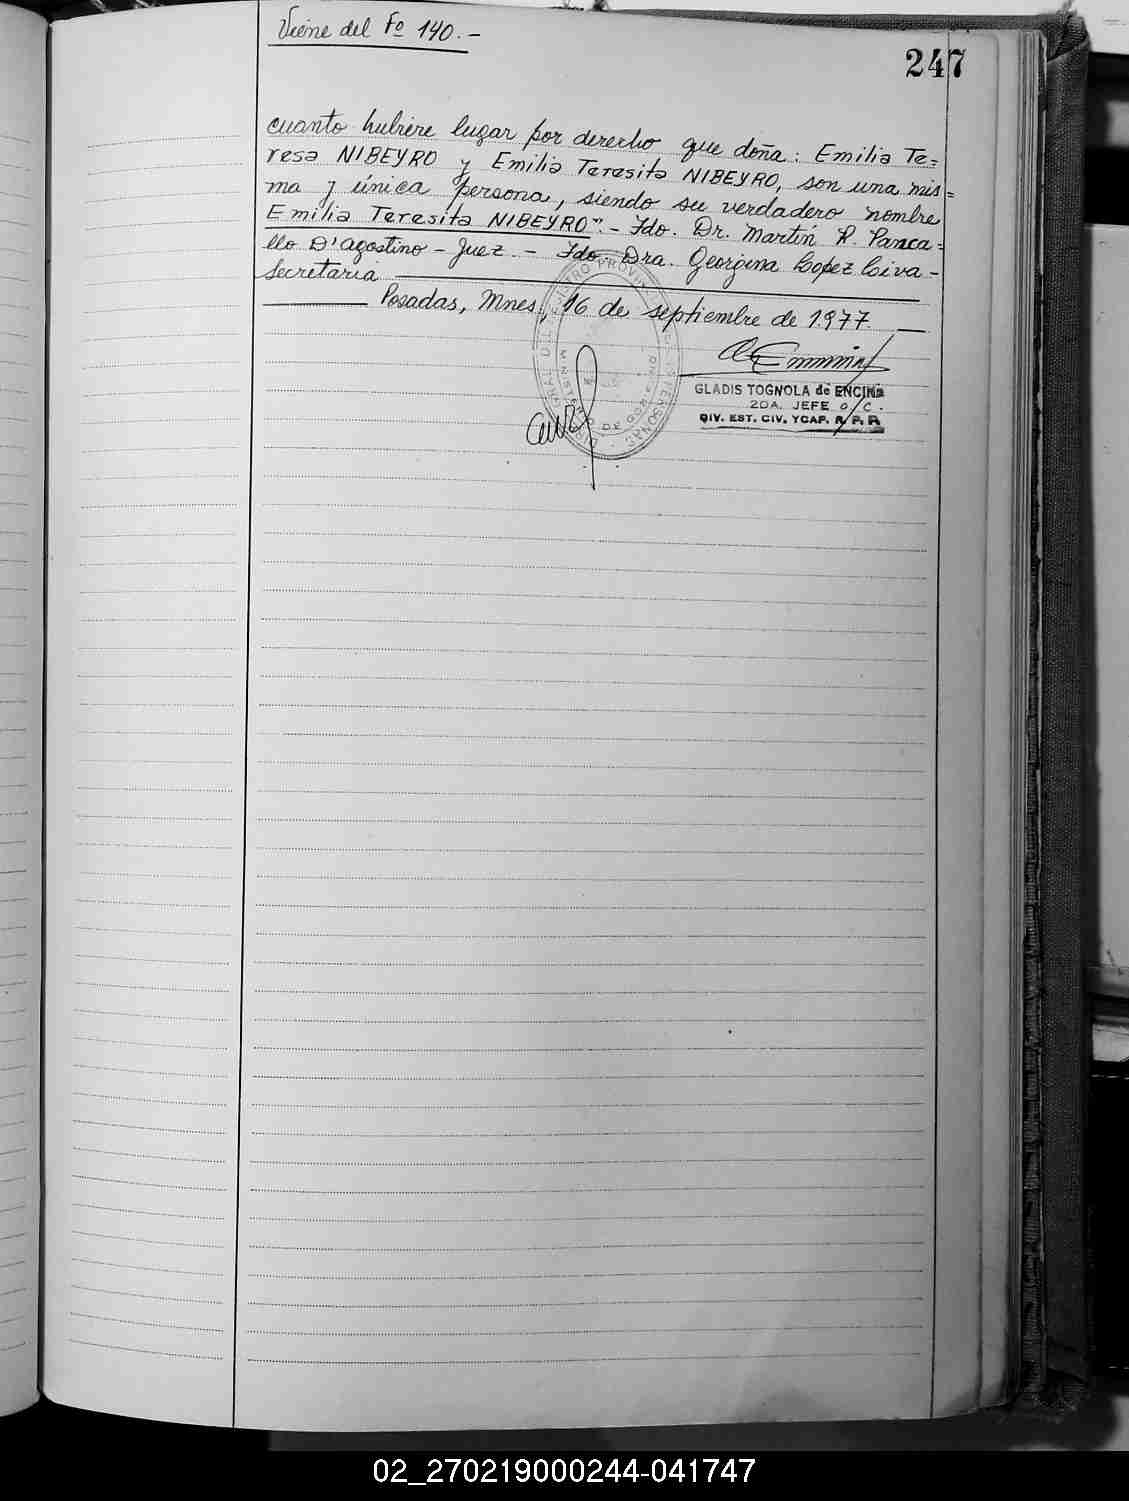 Viene del Fº 140.-
247
cuanto hubiere lugar por derecho que doña: Emilia Te=
resa NIBEYRO y Emilia Teresita NIBEYRO, son una mis=
ma y única persona, siendo su verdadero nombre
Emilia Teresita NIBEYRO".- Fdo. Dr. Martín R. Panca=
llo D'agostino - Juez.- Fdo. Dra. Georgina Lopez Liva-
Secretaria
Posadas, Mnes., 16 de septiembre de 1.977.
GLADIS TOGNOLA de ENCINA
2DA. JEFE a/c.
DIV. EST. CIV. YCAP. R. P. P.
02_270219000244-041747